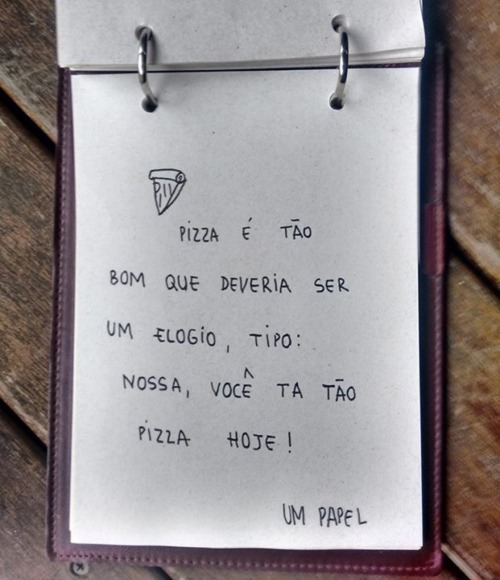 PIZZA É TÃO
BOM QUE DEVERIA SER
UM ELOGIO, TIPO:
NOSSA, VOCÊ TA TÃO
PIZZA HOJE!
UM PAPEL